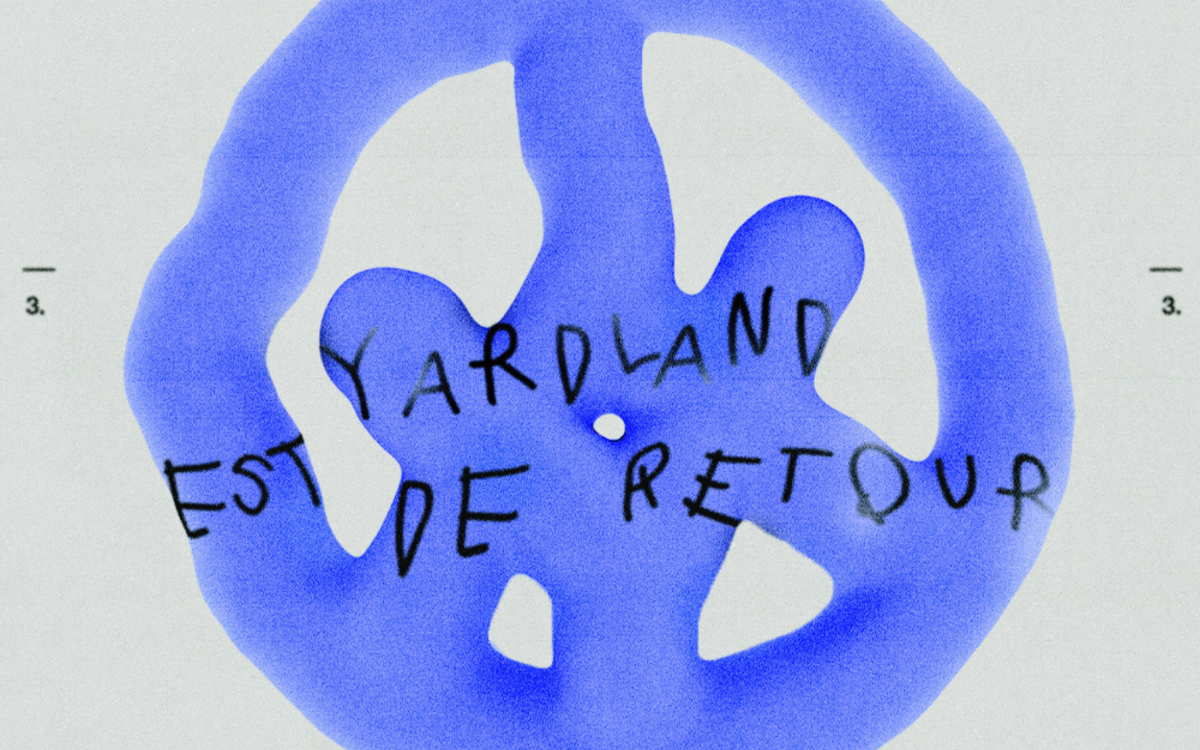 YARDLAND
EST DE RETOUR
3.
3.